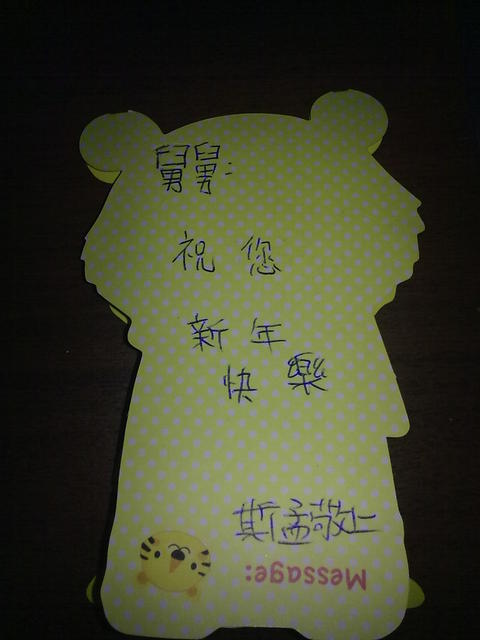 舅舅:
祝您
新年
快樂
斯孟敬上
Message: